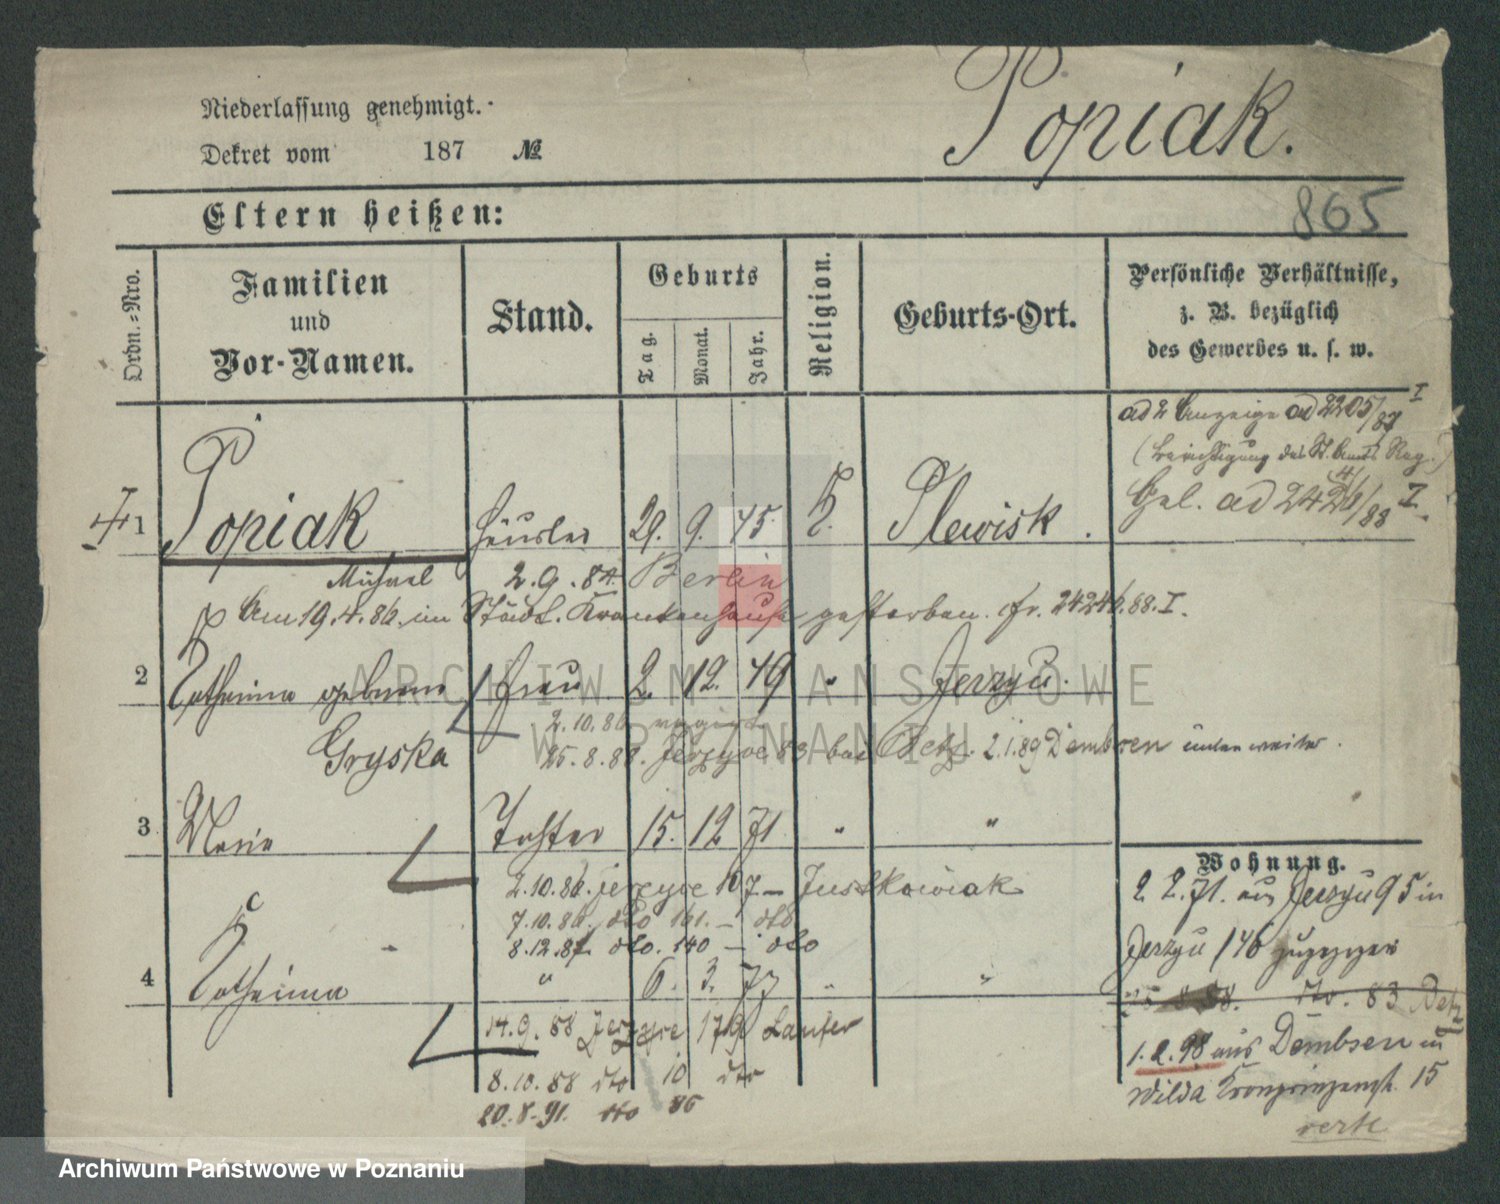 Niederlassung genehmigt.
Dekret vom 187 №
Popiak.
865
Eltern heißen:
Ordn.-Nro.
Familien
und
Vor-Namen.
Stand.
Geburts
Tag.
Monat.
Jahr.
Religion.
Geburts-Ort.
Persönliche Verhältnisse,
z. B. bezüglich
des Gewerbes u. s. w.
ad 2 Anzeige ad 2205/87 I
(Berichtigung des St. Amts Reg.)
Gel. ad 2424/88 I.
1 Popiak Häusler 29. 9. 45. K. Plewisk.
Michael 2.9.84. Berlin
Am 19.4.86. im Städt. Krankenhause gestorben. 24246.88.I.
2 Catharina geborene Frau 2. 12. 49 " Jerzyc.
Gryska
2.10.86
25.8.88. Jerzyce 83 bei Betz. 2.1.89 Dembsen unten weiter.
3 Marie Tochter 15. 12 71 " "
2.10.86. Jerzyce 107 — Juskowiak
7.10.86. dto 161. — dto
8.12.87. dto. 140 — dto
4 Catharina " 6. 3. 77 " "
14.9.88 Jerzyce 179 Laufer
8.10.88 dto 10 dto
20.8.91. dto 86
Wohnung.
2. 2. 71. aus Jerzyc 95 in
Jerzyc 146 zugezogen
25.8.88. dto. 83 Betz
1.2.98 aus Dembsen in
Wilda Kronprinzenst. 15
verte
ARCHIWUM PAŃSTWOWE
W POZNANIU
Archiwum Państwowe w Poznaniu